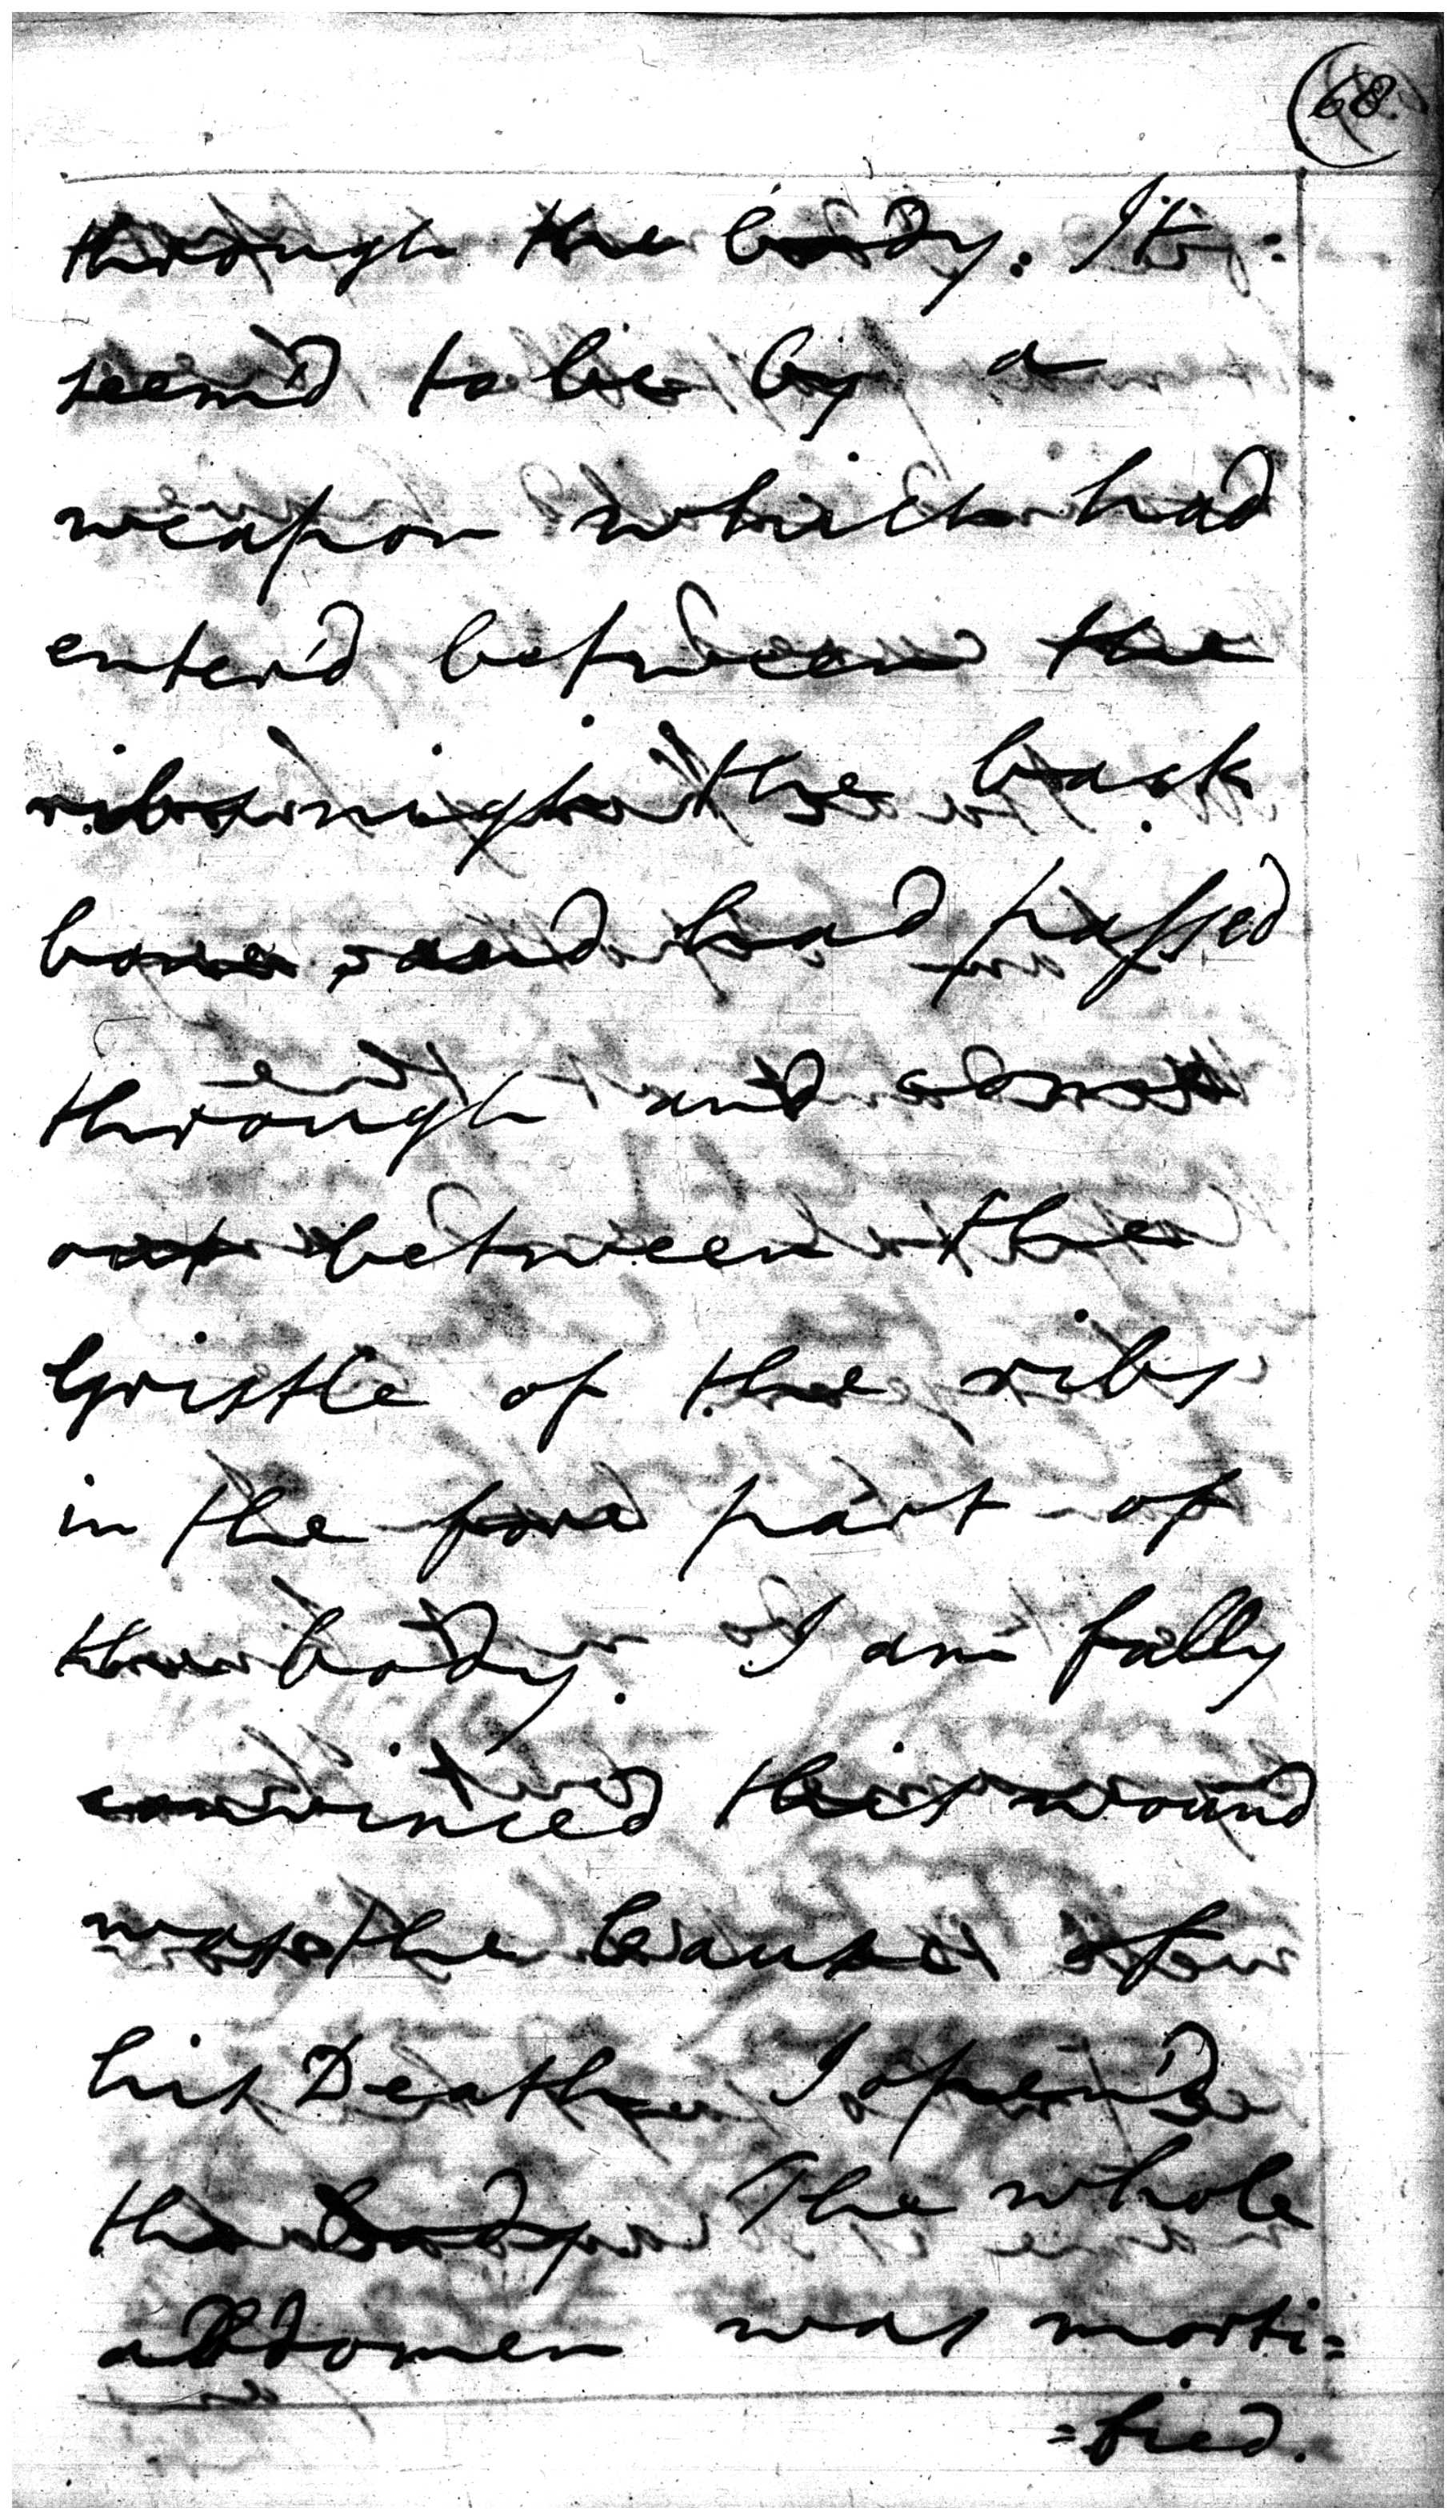 (68.)
through the body. It
seem'd to be by a
weapon which had
enter'd between the
ribs nigh the back
bone, and had passed
through and almost
out between the
Gristle of the ribs
in the fore part of
the body. I am fully
convinced this wound
was the Cause of
his Death. I open'd
the body. The whole
abdomen was morti=
=fied.